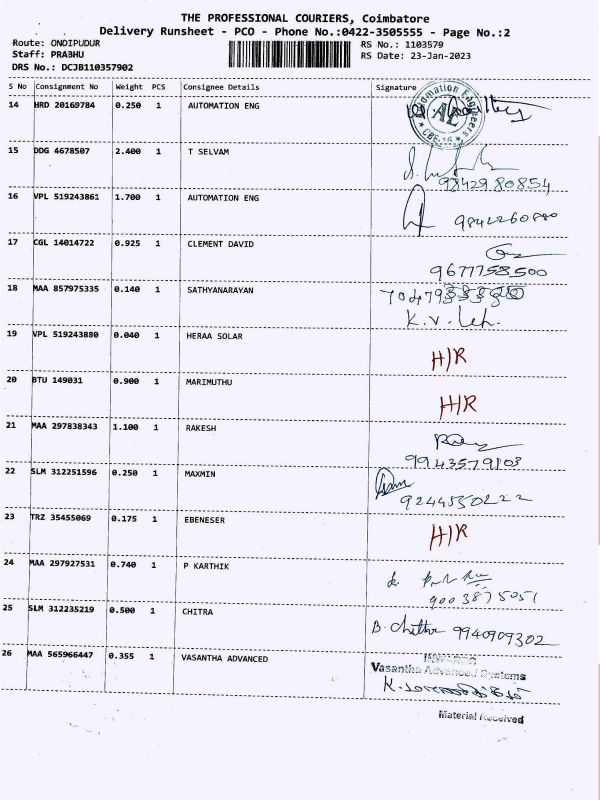 THE PROFESSIONAL COURIERS, Coimbatore
Delivery Runsheet - PCO - Phone No.:0422-3505555 - Page No.:2
Route: ONDIPUDUR
RS No.: 1103579
Staff: PRABHU
RS Date: 23-Jan-2023
DRS No.: DCJB110357902
S No Consignment No Weight PCS Consignee Details Signature
14 HRD 20169784 0.250 1 AUTOMATION ENG
15 DDG 4678507 2.400 1 T SELVAM
9842980854
16 VPL 519243861 1.700 1 AUTOMATION ENG
9842260880
17 CGL 14014722 0.925 1 CLEMENT DAVID
9677758500
18 MAA 857975335 0.140 1 SATHYANARAYAN
K.V.
19 VPL 519243880 0.040 1 HERAA SOLAR
H/R
20 BTU 149031 0.900 1 MARIMUTHU
H/R
21 MAA 297838343 1.100 1 RAKESH
9943579103
22 SLM 312251596 0.250 1 MAXMIN
9244550222
23 TRZ 35455069 0.175 1 EBENESER
H/R
24 MAA 297927531 0.740 1 P KARTHIK
9003875051
25 SLM 312235219 0.500 1 CHITRA
B. Chitra 9940909302
26 MAA 565966447 0.355 1 VASANTHA ADVANCED
Vasantha Advanced Systems
Material Received